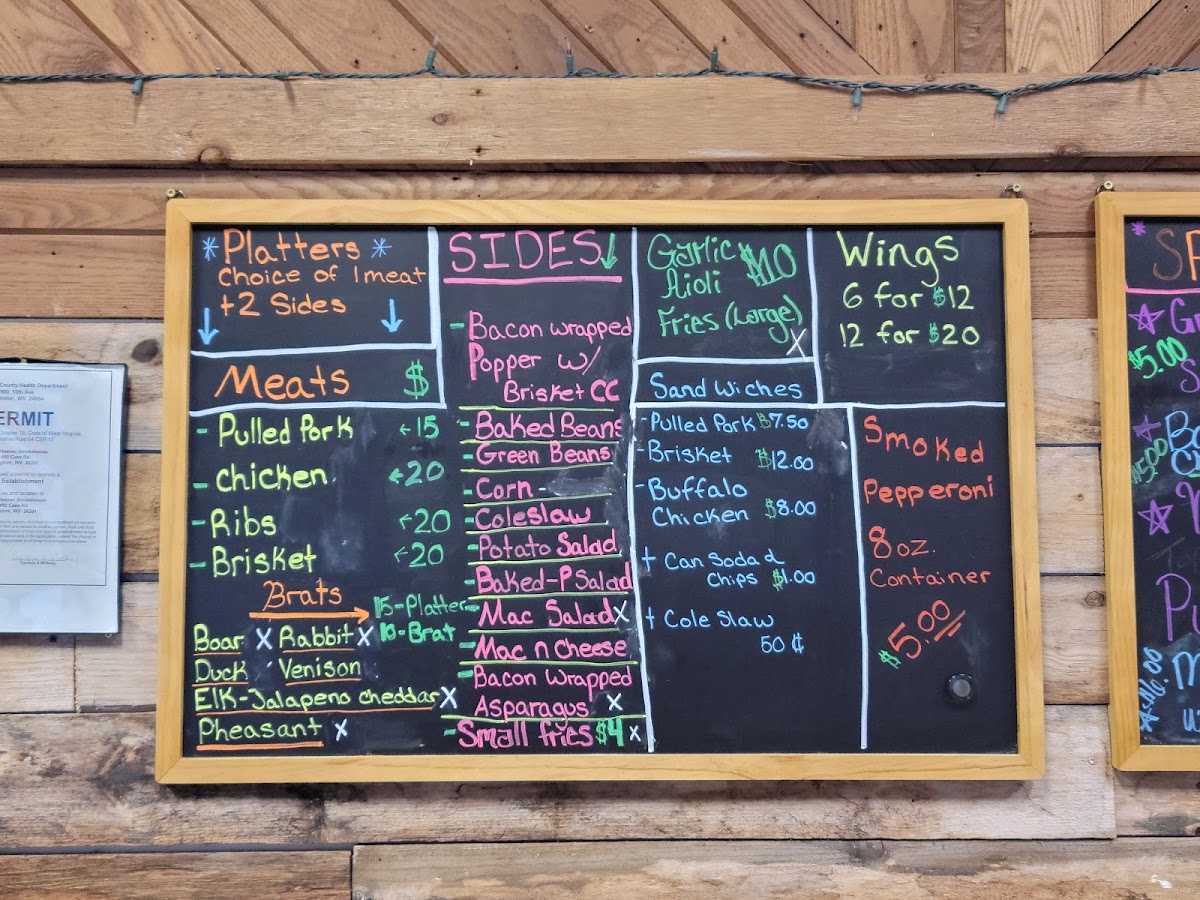 * Platters *
Choice of 1 meat
+2 Sides
↓ ↓
Meats $
- Pulled Pork ←15
- chicken ←20
- Ribs ←20
- Brisket ←20
Brats
15-Platter
10-Brat
Boar X Rabbit X
Duck Venison
Elk-Jalapeno cheddar X
Pheasant X
SIDES↓
- Bacon wrapped
Popper w/
Brisket CC
- Baked Beans
- Green Beans
- Corn -
- Coleslaw
- Potato Salad
- Baked-P Salad
- Mac Salad X
- Mac n Cheese
- Bacon Wrapped
Asparagus X
- Small fries $4 X
Garlic $10
Aioli
Fries (Large)
X
Wings
6 for $12
12 for $20
Sandwiches
- Pulled Pork $7.50
- Brisket $12.00
- Buffalo
Chicken $8.00
+ Can Soda &
Chips $1.00
+ Cole Slaw
50¢
Smoked
Pepperoni
8 oz.
Container
$5.00
County Health Department
ERMIT
Establishment
*
$5.00
$5.00